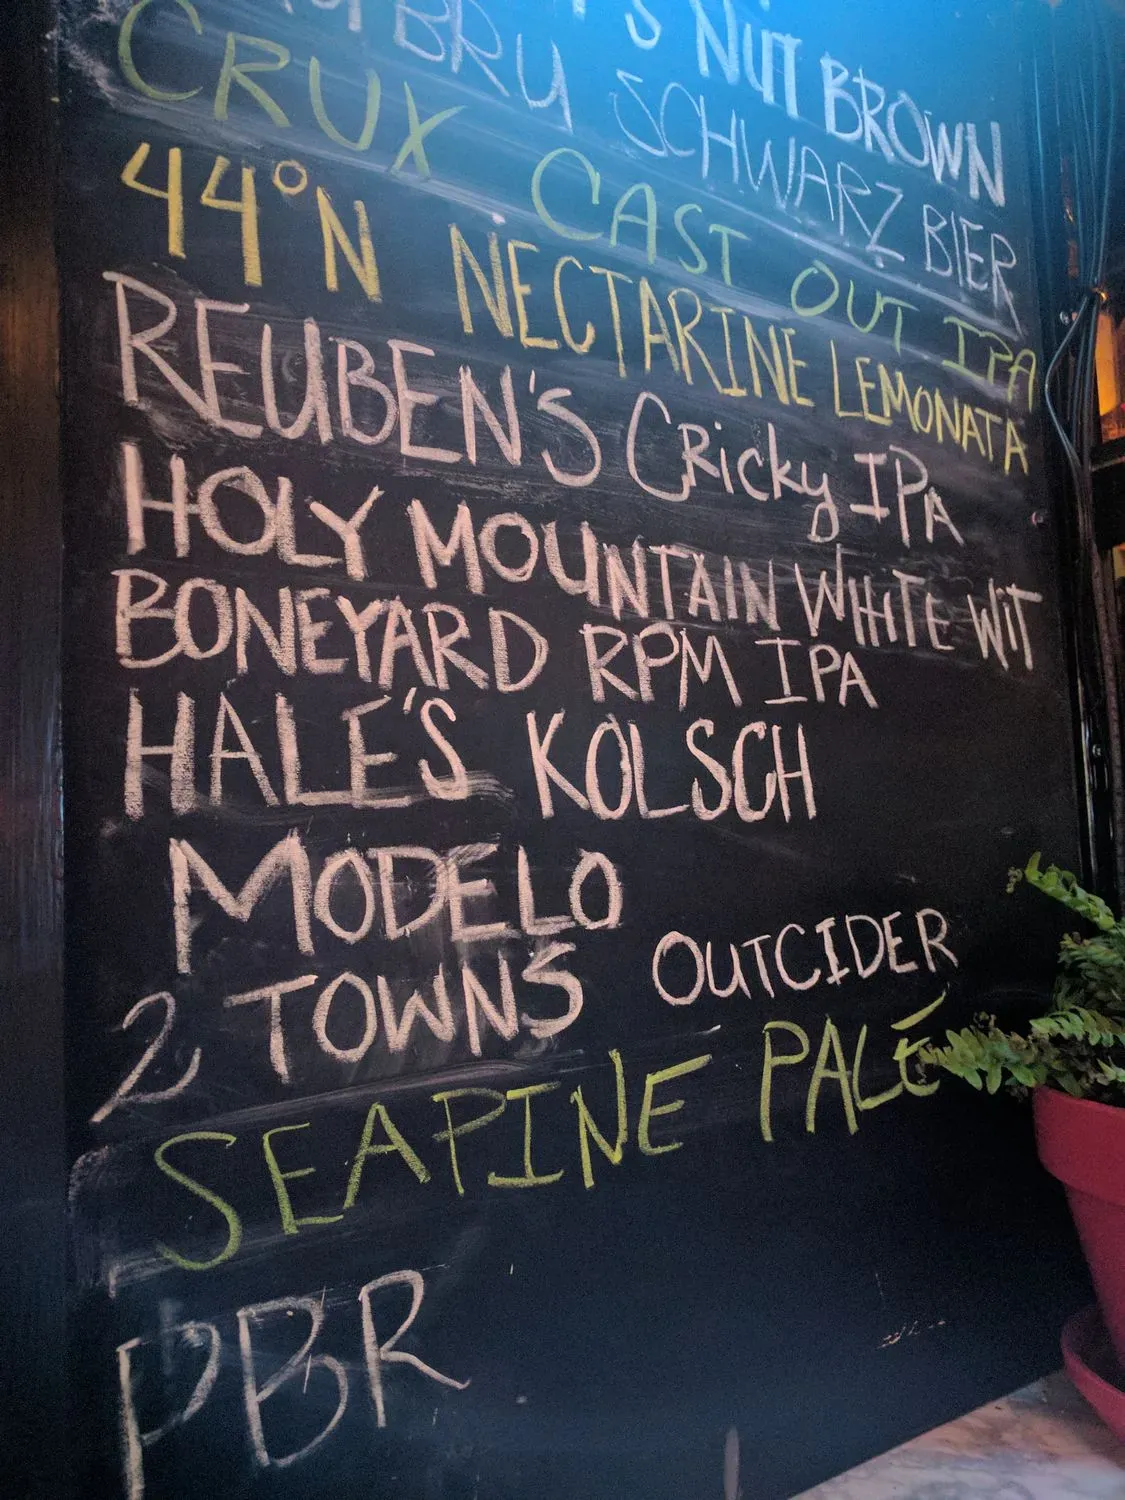 NUT BROWN
BRU SCHWARZ BIER
CRUX CAST OUT IPA
44°N NECTARINE LEMONATA
REUBEN'S CRicky IPA
HOLY MOUNTAIN WHITE WiT
BONEYARD RPM IPA
HALE'S KOLSCH
MODELO
2 TOWNS OUTCIDER
SEAPINE PALÉ
PBR